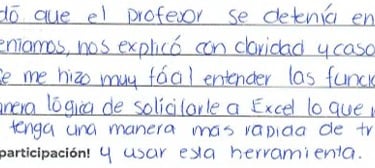 dó que el profesor se detenía en
eníamos, nos explicó con claridad y caso
e me hizo muy fácil entender las funcio
nera lógica de solicitarle a Excel lo que
tenga una manera mas rapida de tr
participación! y usar esta herramienta.